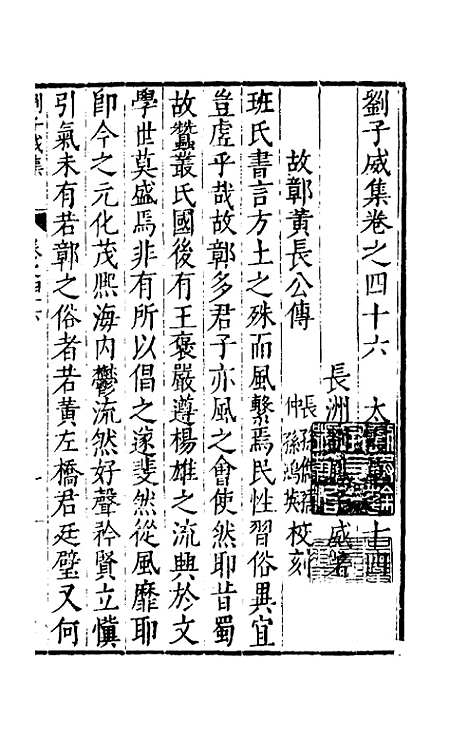 劉子威集卷之四十六 太
長洲 威著
長孫
仲孫鴻英 校刻
故鄣黃長公傳
班氏書言方土之殊而風繫焉民性習俗異宜
豈虛乎哉故鄣多君子亦風之會使然耶昔蜀
故蠶叢氏國後有王褒嚴遵楊雄之流興於文
學世莫盛焉非有所以倡之遂斐然從風靡耶
卽今之元化茂熙海內鬱流然好聲矜賢立慎
引氣未有若鄣之俗者若黃左橋君廷璧又何